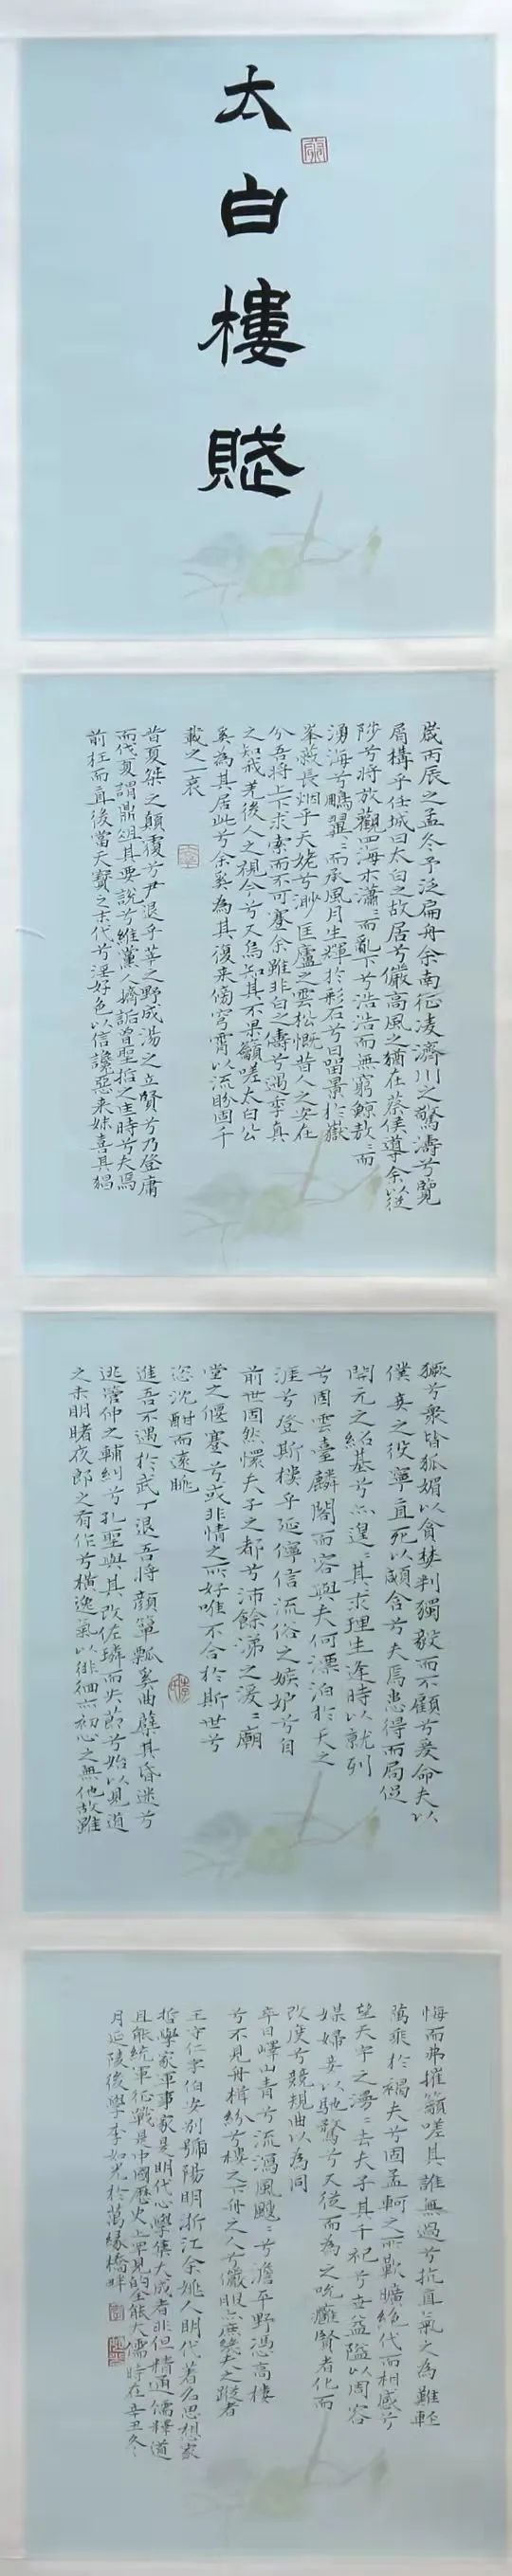 太白樓賦
歲丙辰之孟冬予泛扁舟余南征凌濟川之驚濤兮覽
層構乎任城曰太白之故居兮儼高風之猶在蔡侯導余以從
陟兮將放觀四海木瀟々而亂下兮浩浩而無窮鯨敖々而
湧海兮鵬翼々而承風月生輝於彩石兮日留景於嶽
峯蔽長烟乎天姥兮渺匡廬之雲松慨昔人之安在
兮吾將上下求索而不可蹇余雖非白之儔兮遇季真
之知我羌後人之視今兮又烏知其不果籲嗟太白公
奚為其居此兮余奚為其復來倚穹霄以流盼固千
載之一哀
昔夏桀之顛覆兮尹退乎莘之野成湯之立賢兮乃登庸
而伐夏謂鼎俎其要說兮維黨人擠詬曾聖哲之生時兮夫焉
前枉而直後當天寶之末代兮淫好色以信讒惡來妹喜其猖
獗兮衆皆狐媚以貪婪判獨毅而不顧兮爰命夫以
僕妾之役寧直死以顑含兮夫焉患得而局促
開元之紹基兮亦遑々其求理生逢時以就列
兮固雲臺麟閣而容與夫何漂泊於天之
涯兮登斯樓乎延佇信流俗之嫉妒兮自
前世固然懷夫子之都兮沛餘涕之湲々廟
堂之偃蹇兮或非情之所好唯不合於斯世兮
恣沈酣而遠眺
進吾不遇於武丁退吾將顏簞瓢奚曲糵其昏迷兮
逃管仲之輔糾兮孔聖與其改佐璘而失節兮始以見道
之未明睹夜郎之有作兮橫逸氣以徘徊亦初心之無他故雖
悔而弗摧籲嗟其誰無過兮抗直氣之為難輕
萬乘於褐夫兮固孟軻之所歎曠絕代而相感兮
望天宇之漫々去夫子其千祀兮世益隘以周容
媒婦妾以馳騖兮又從而為之吮癰賢者化而
改度兮競規曲以為同
卒曰嶧山青兮流瀉風颸々兮澹平野憑高樓
兮不見舟楫紛兮樓之下舟之人兮儼服亦庶幾夫之蹤者
王守仁字伯安別號陽明浙江余姚人明代著名思想家
哲學家軍事家是明代心學集大成者非但精通儒釋道
且能統軍征戰是中國歷史上罕見的全能大儒時在辛丑冬
月延陵後學李如光於萬緣橋畔